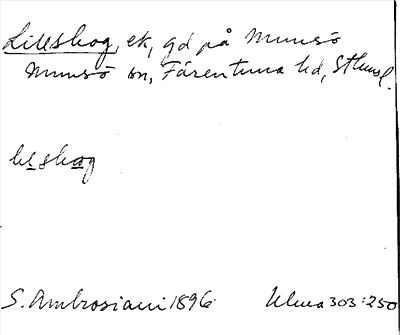 Lilleskog, ek, gd på Munsö
Munsö sn, Färentuna hd, Sthms l.
leskog
S. Ambrosiani 1896 Ulma 303:250